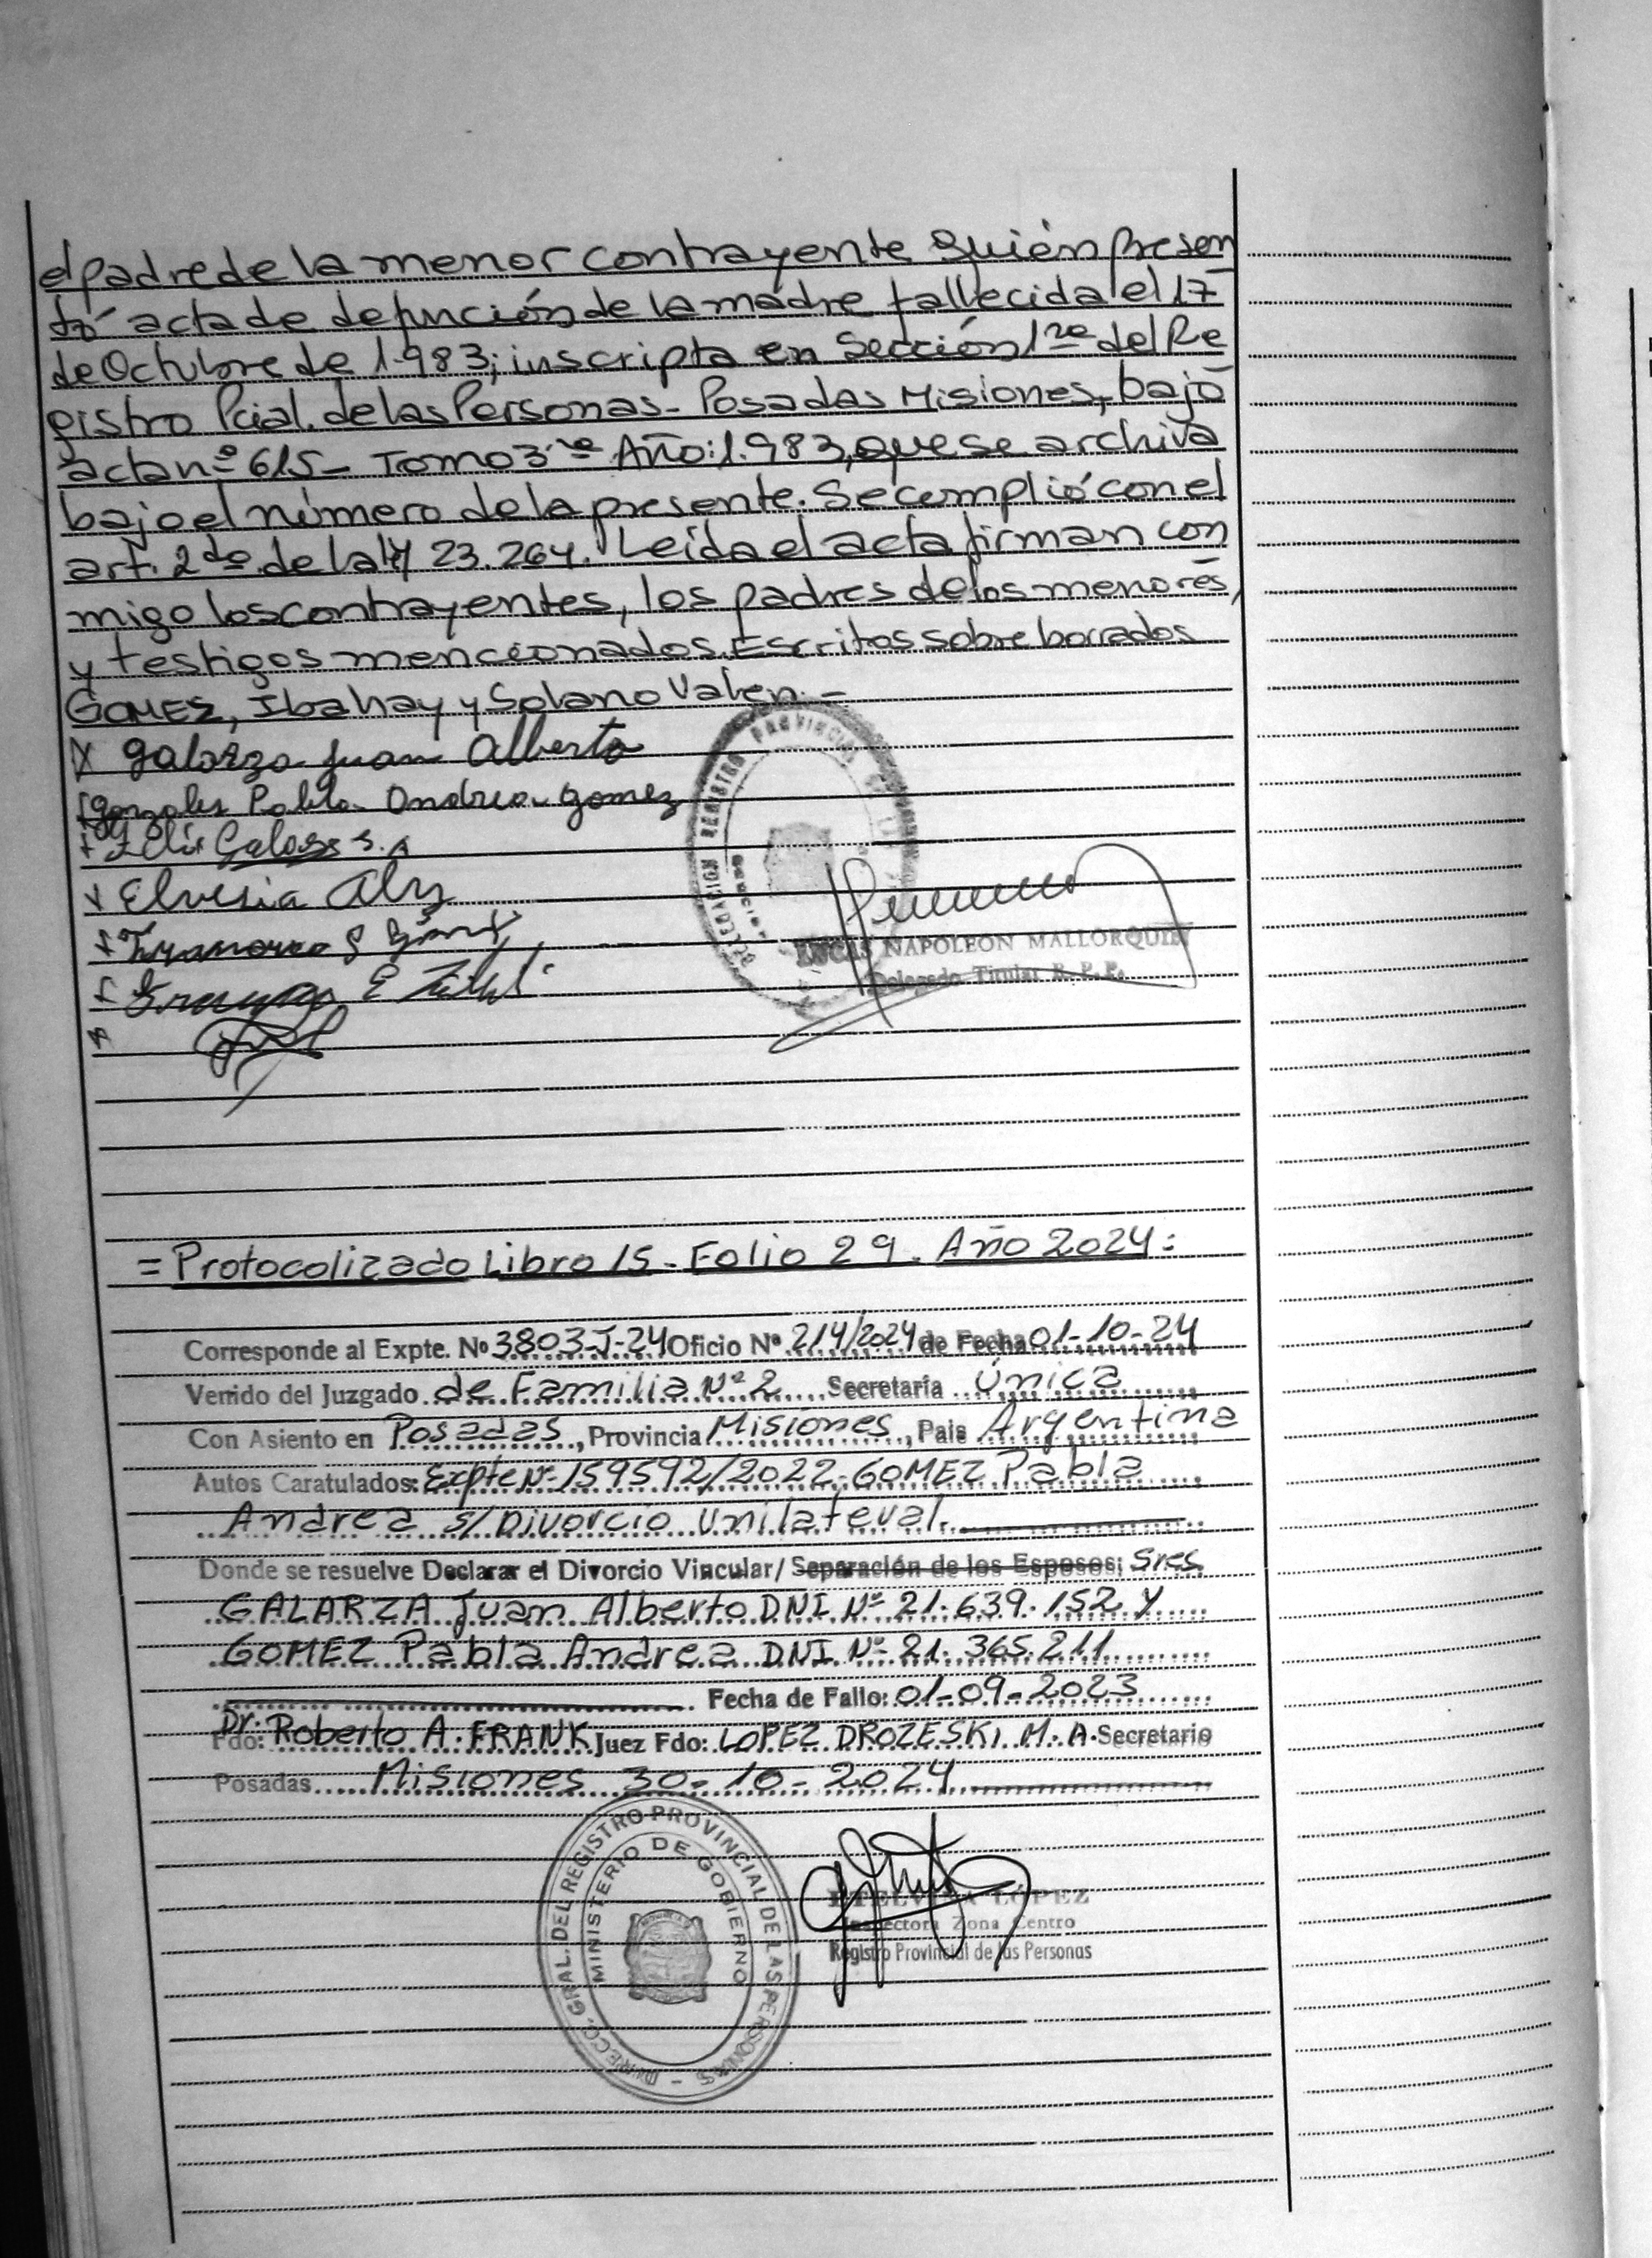 el padre de la menor contrayente quién presen
tó acta de defunción de la madre fallecida el 17
de Octubre de 1.983; inscripta en Sección 1ra del Re
gistro Pcial. de las Personas - Posadas Misiones, bajo
acta nº 615 - Tomo 3ro Año: 1.983, que se archiva
bajo el número de la presente. Se cumplió con el
art. 2do de la ley 23.264. Leída el acta firman con
migo los contrayentes, los padres de los menores,
y testigos mencionados. Escritos sobre borrados
GOMEZ, Ibahay y Solano Valen. -
X Galarza Juan Alberto
Pabla Andrea Gomez
Elvesia
REGISTRO PROVINCIAL
DELEGACION
LUCAS NAPOLEON MALLORQUIN
Delegado Titular R. P. P.
= Protocolizado Libro 15 - Folio 29 - Año 2024 =
Corresponde al Expte. Nº 3803-J-24 Oficio Nº 214/2024 de Fecha 01-10-24
Venido del Juzgado de Familia Nº 2 Secretaría Única
Con Asiento en Posadas, Provincia Misiones, País Argentina
Autos Caratulados: Expte Nº 159592/2022 - GOMEZ Pabla
Andrea s/ Divorcio Unilateral.
Donde se resuelve Declarar el Divorcio Vincular/ Separación de los Esposos: Sres.
GALARZA Juan Alberto DNI Nº 21.639.152 y
GOMEZ Pabla Andrea DNI Nº 21.365.211
Fecha de Fallo: 01-09-2023
Fdo: Dr. Roberto A. FRANK Juez Fdo: LOPEZ DROZESKI M. A. Secretario
Posadas Misiones 30-10-2024
DIRECC. GRAL. DEL REGISTRO PROVINCIAL DE LAS PERSONAS -
MINISTERIO DE GOBIERNO
ETELVINA LÓPEZ
Inspectora Zona Centro
Registro Provincial de las Personas